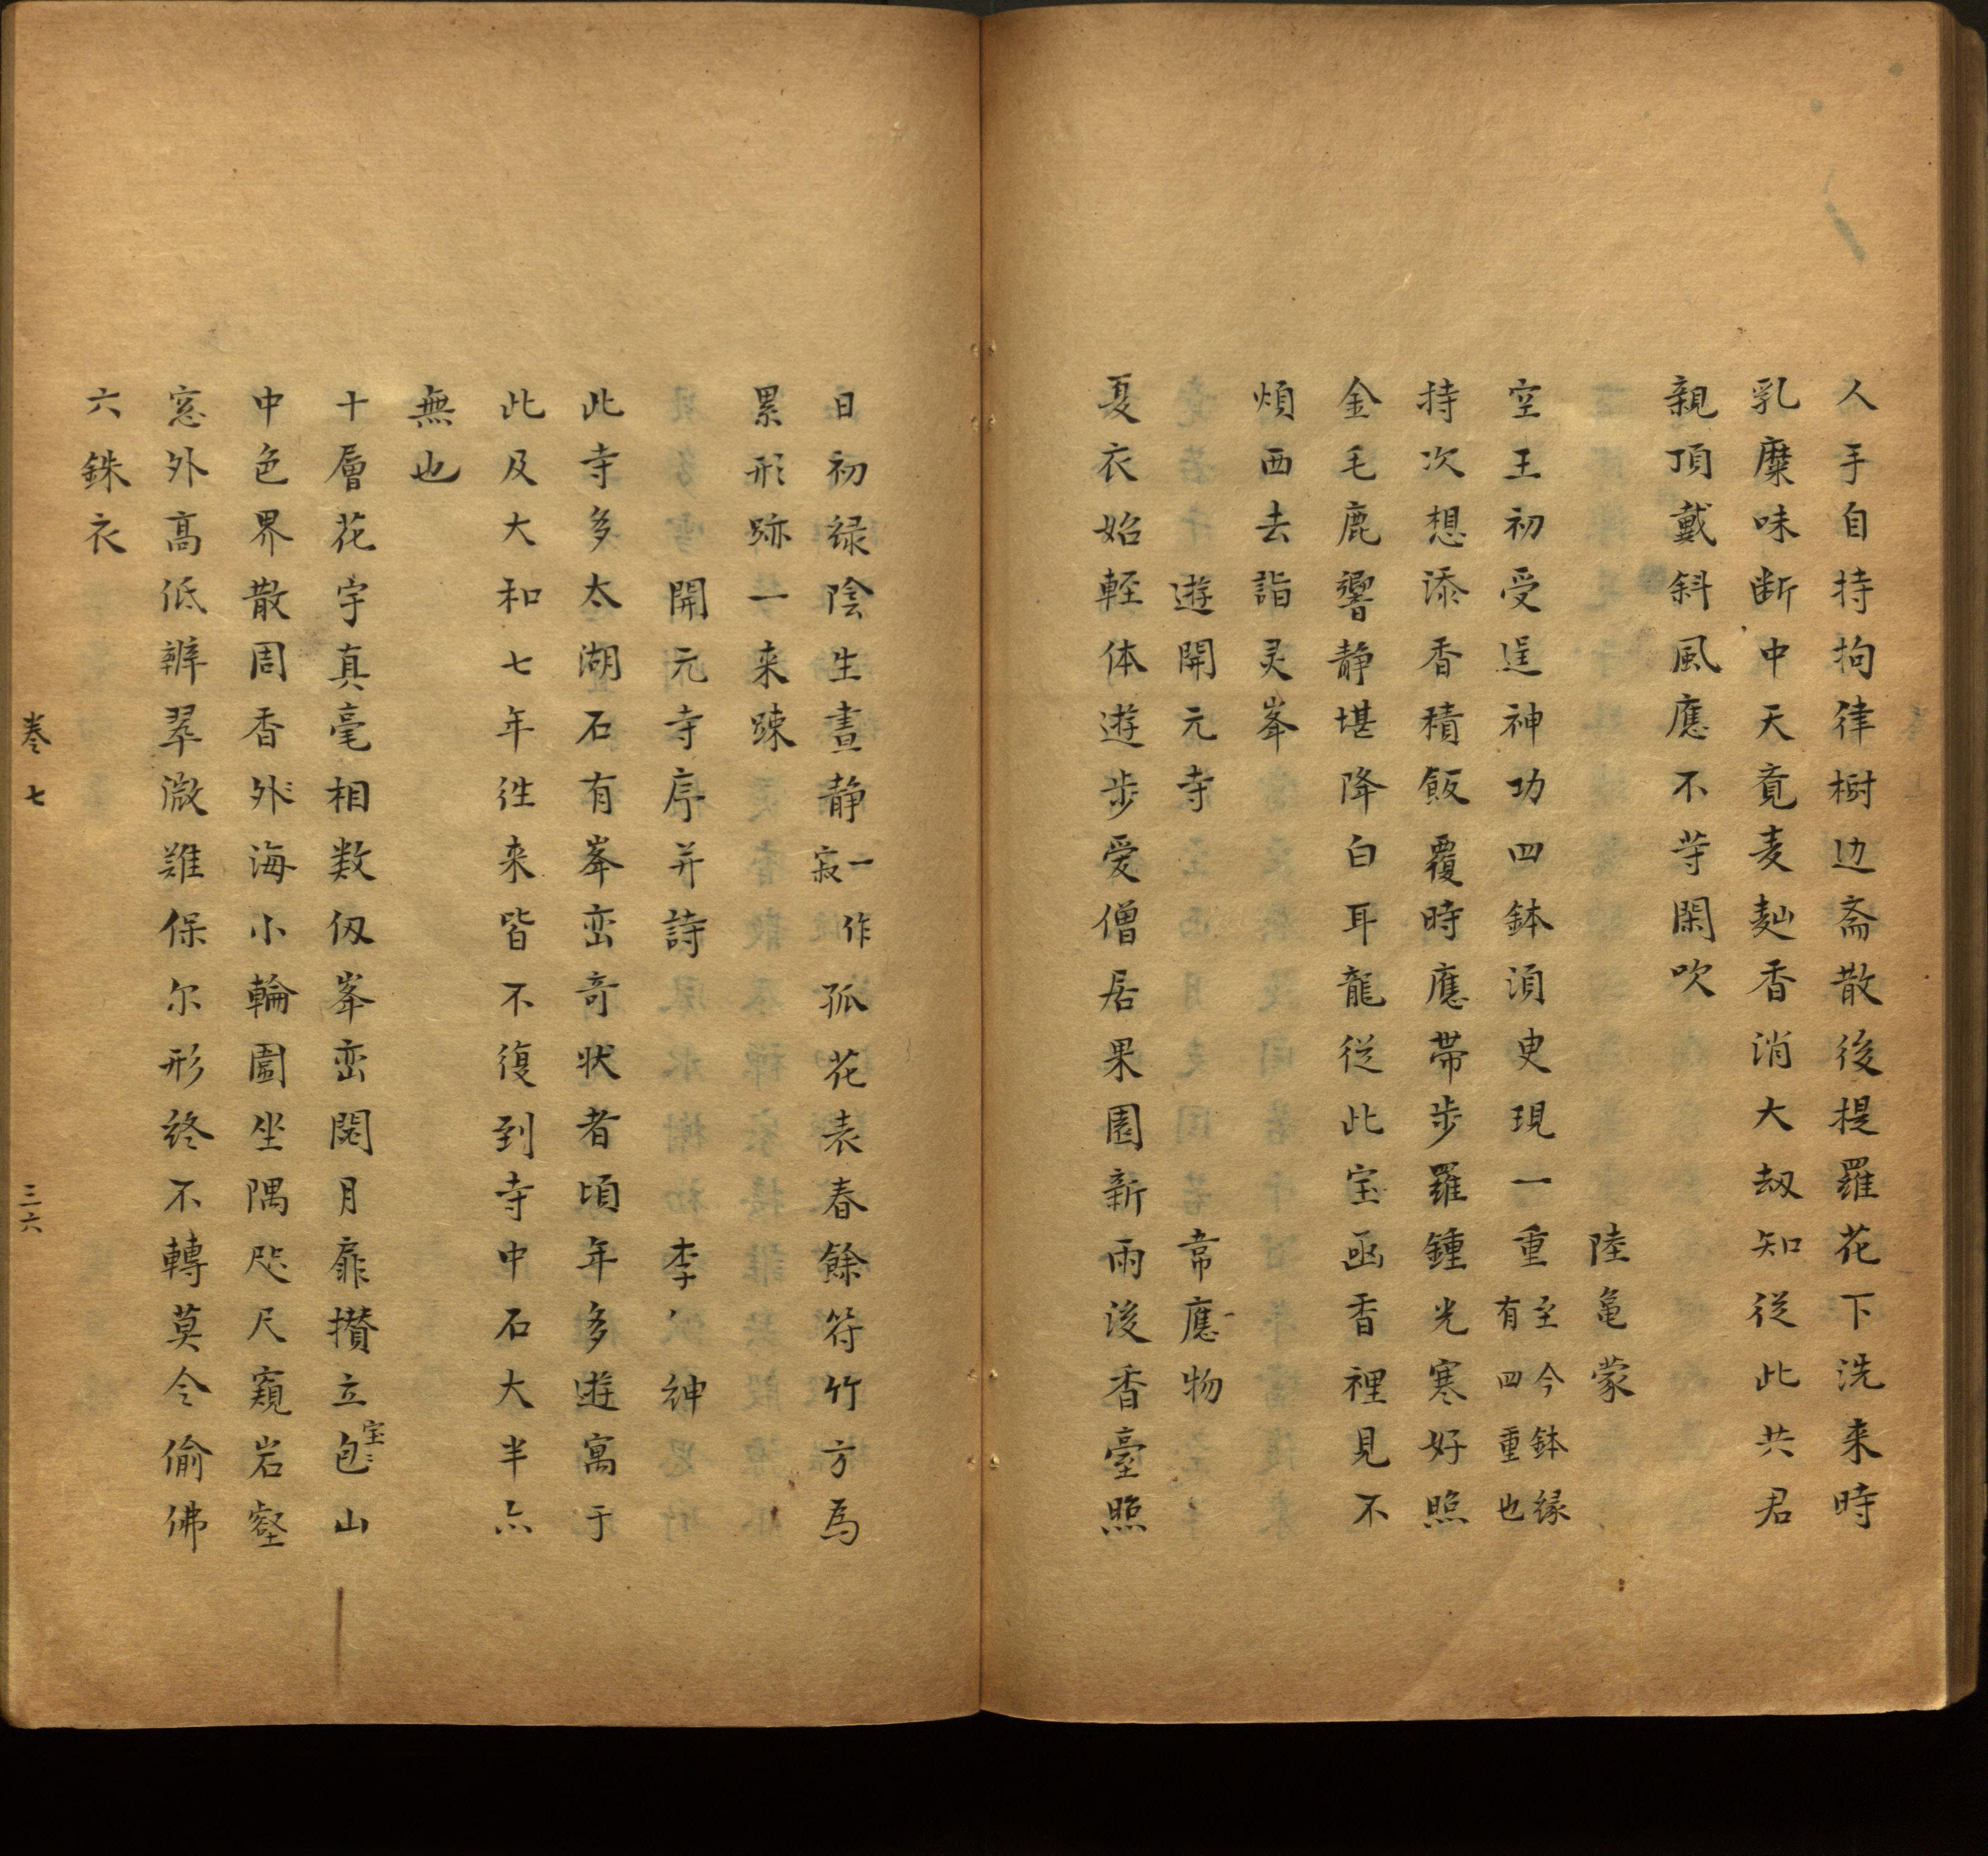 人手自持拘律樹边斋散後提羅花下洗来時
乳糜味断中天竟麦麨香消大劫知従此共君
親頂戴斜風應不等閑吹
陸亀蒙
空王初受逞神功四鉢湏臾現一重至今鉢縁有四重也
持次想添香積飯覆時應帯步羅鍾光寒好照
金毛鹿響静堪降白耳龍従此宝凾香裡見不
煩西去詣灵峯
遊開元寺 韋應物
夏衣始軽体遊步愛僧居果園新雨後香臺照
日初緑陰生晝静一作寂孤花表春餘符竹方為
累形跡一来踈
開元寺序并詩 李紳
此寺多太湖石有峯峦奇状者頃年多遊寓于
此及大和七年徃来皆不復到寺中石大半亦
無也
十層花宇真毫相数仭峯峦閟月扉攅立宝包山
中色界散周香外海小輪圍坐隅咫尺窺岩壑
窓外高低辨翠微難保尔形終不轉莫令偷佛
六銖衣
巻七 三六